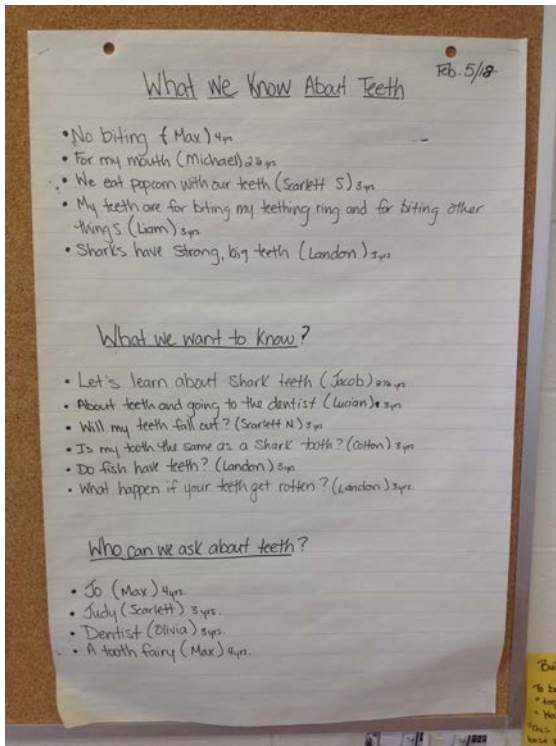 Feb. 5/18
What We Know About Teeth
• No biting (Max) 4yrs
• For my mouth (Michael) 2½ yrs
• We eat popcorn with our teeth (Scarlett S) 3yrs
• My teeth are for biting my teething ring and for biting other
things (Liam) 3yrs
• Sharks have strong, big teeth (Landon) 3yrs
What we want to know?
• Let's learn about shark teeth (Jacob) 2½ yrs
• About teeth and going to the dentist (Lucian) 3yrs
• Will my teeth fall out? (Scarlett N) 3yrs
• Is my tooth the same as a shark tooth? (Colton) 3yrs
• Do fish have teeth? (Landon) 3yrs
• What happen if your teeth get rotten? (Landon) 3yrs.
Who can we ask about teeth?
• Jo (Max) 4yrs.
• Judy (Scarlett) 3yrs.
• Dentist (Olivia) 3yrs.
• A tooth fairy (Max) 4yrs.